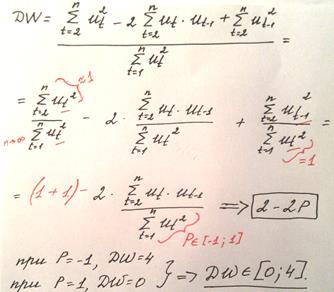 DW = \frac{\sum_{t=2}^{n} u_t^2 - 2 \sum_{t=2}^{n} u_t \cdot u_{t-1} + \sum_{t=2}^{n} u_{t-1}^2}{\sum_{t=1}^{n} u_t^2} =
= \frac{\sum_{t=2}^{n} u_t^2}{\sum_{t=1}^{n} u_t^2} ≈1 n→∞ - 2 \cdot \frac{\sum_{t=2}^{n} u_t \cdot u_{t-1}}{\sum_{t=1}^{n} u_t^2} + \frac{\sum_{t=2}^{n} u_{t-1}^2}{\sum_{t=1}^{n} u_t^2} =1 =
= (1+1) - 2 \cdot \frac{\sum_{t=2}^{n} u_t \cdot u_{t-1}}{\sum_{t=1}^{n} u_t^2} P∈[-1;1] => 2-2P
при P=-1, DW=4
при P=1, DW=0 } => DW∈[0;4].